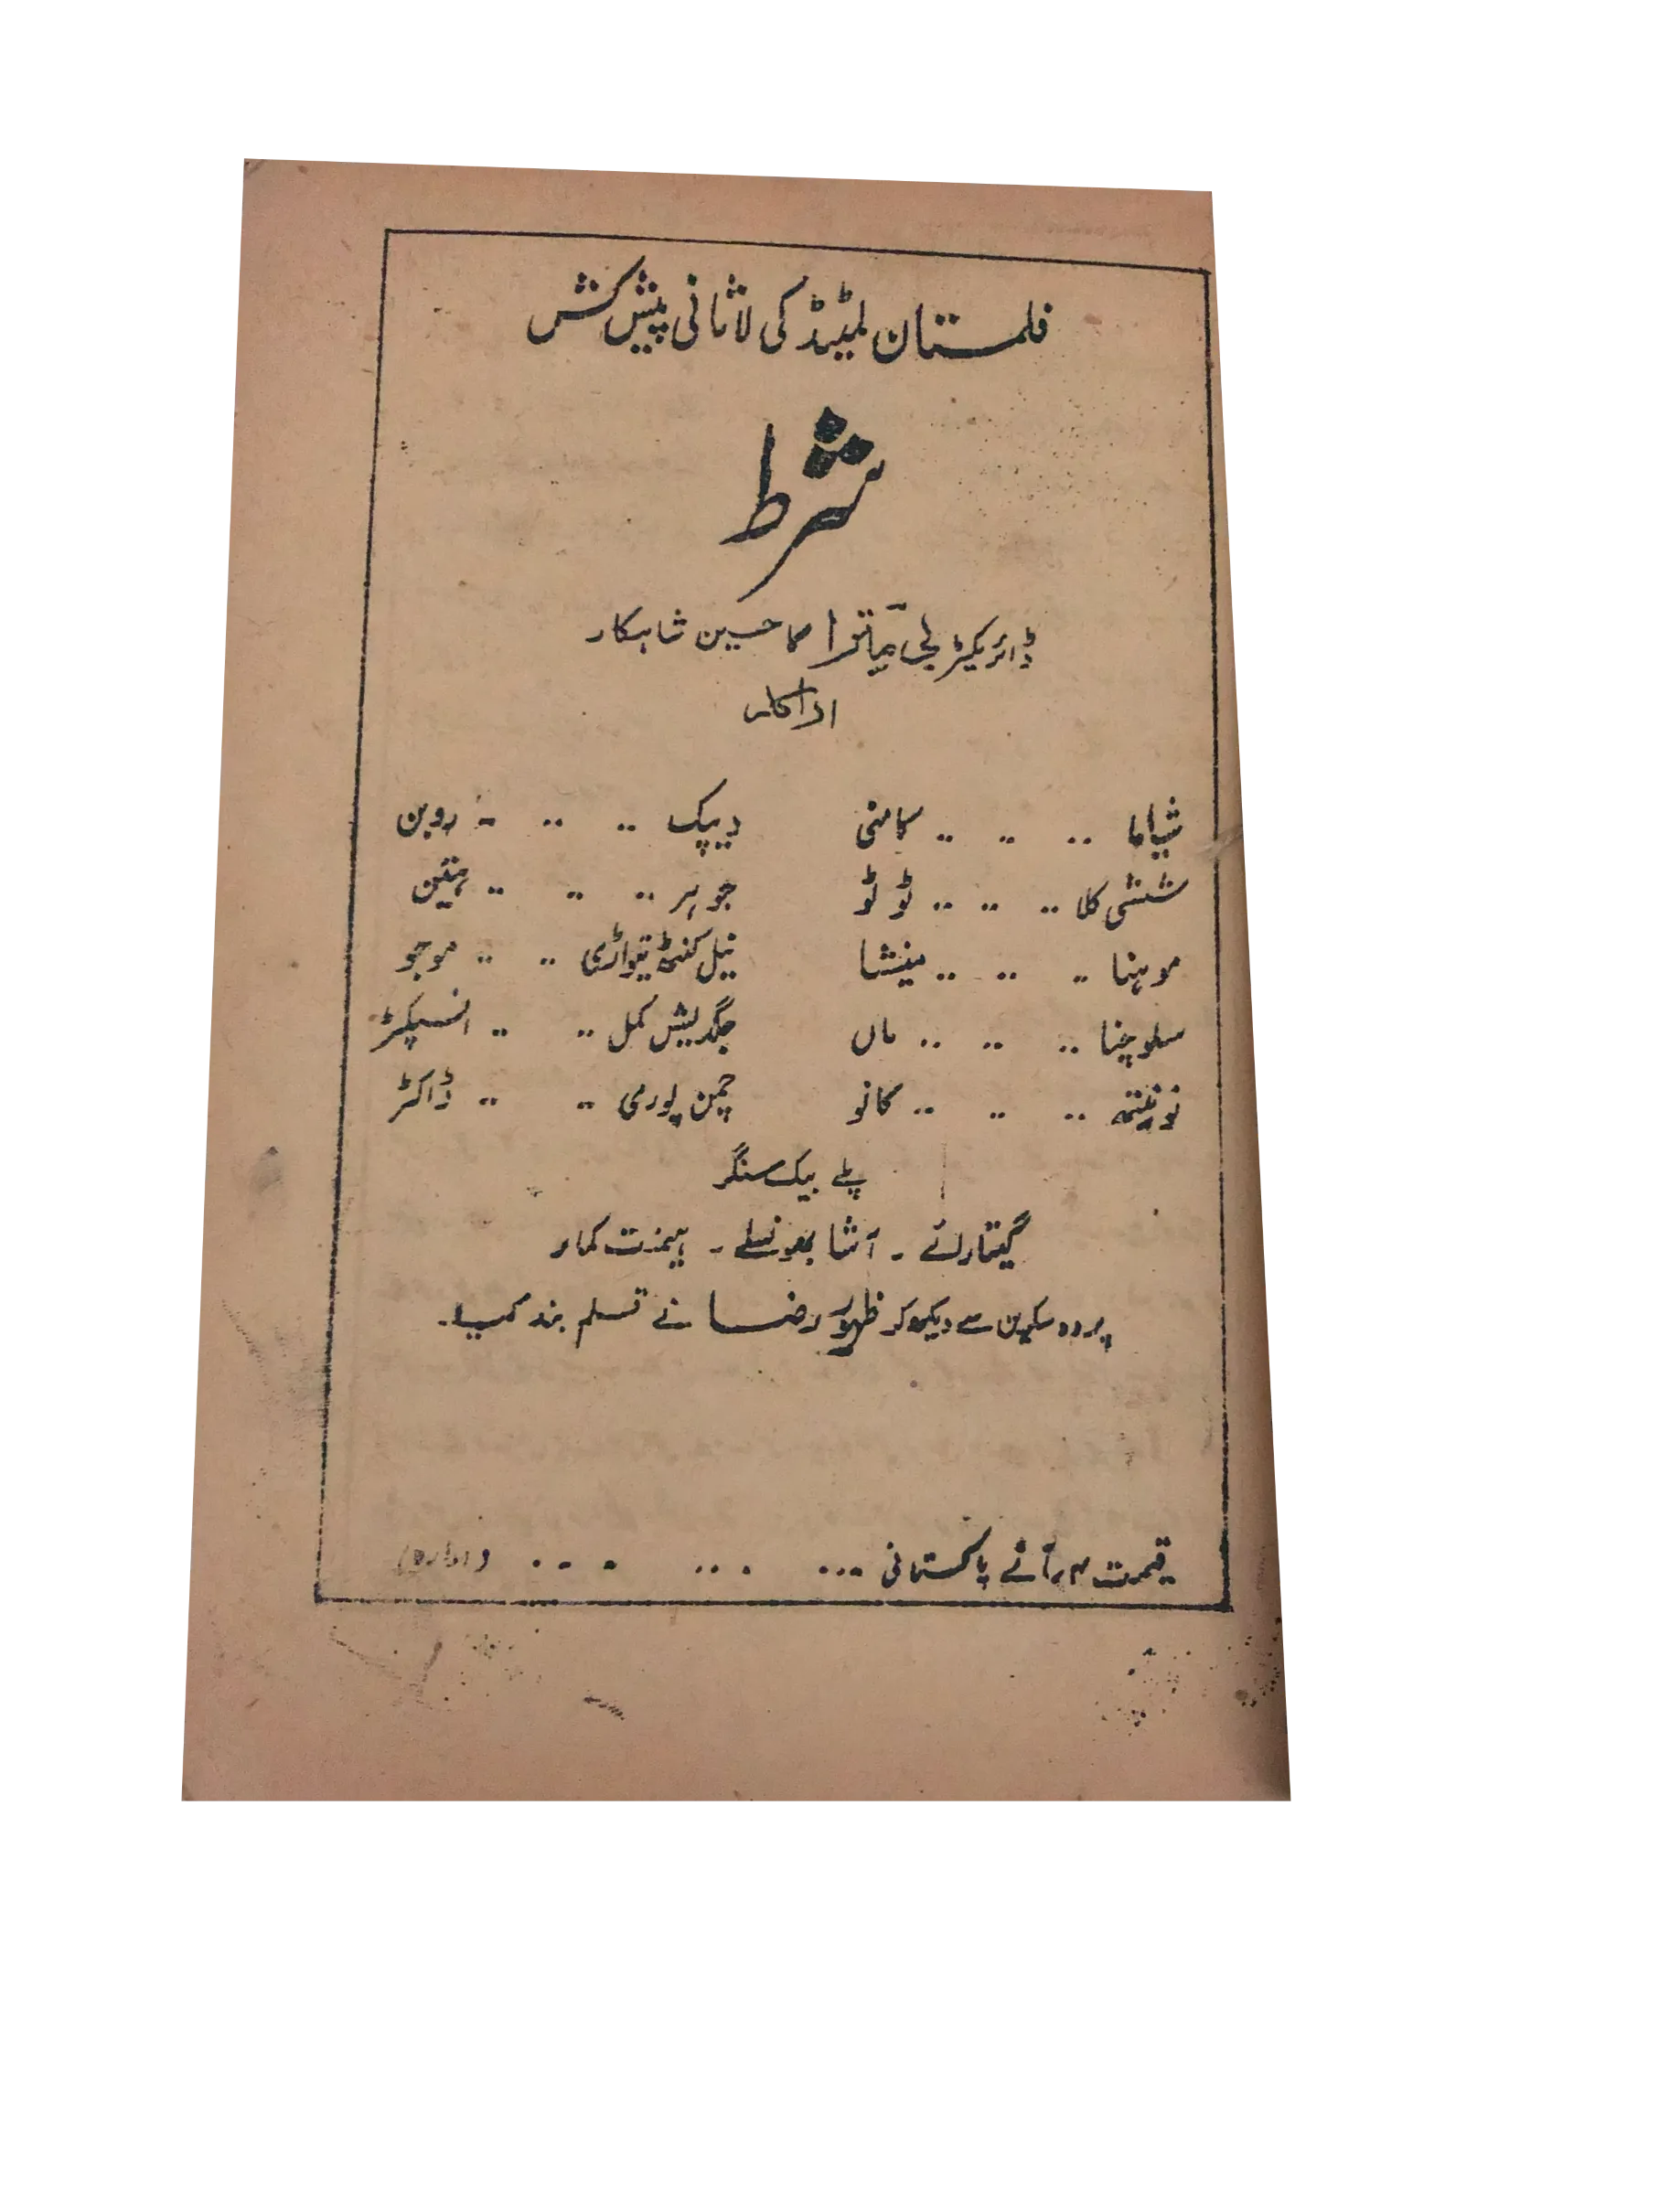 فلمستان لمیٹڈ کی لاثانی پیش کش
شرط
ڈائریکٹر بی مترا کا حسین شاہکار
اداکار
شیاما .. .. .. کامنی دیپک .. .. .. روبن
ششی کلا .. .. .. ٹوٹو جوہر .. .. .. ہتین
موہنا .. .. .. مینشا نیل کنٹھ تیواڑی .. .. موجو
سلوچنا .. .. .. ماں جگدیش کمل .. .. انسپکٹر
نونیتہ .. .. .. کانو چمن پوری .. .. ڈاکٹر
پلے بیک سنگر
گیتا رائے ۔ آشا بھونسلے ۔ ہیمنت کمار
پردہ سکرین سے دیکھ کر ظہور رضا نے قلم بند کیا۔
قیمت ۴ر آنے پاکستانی ... ... ... (ادارہ)